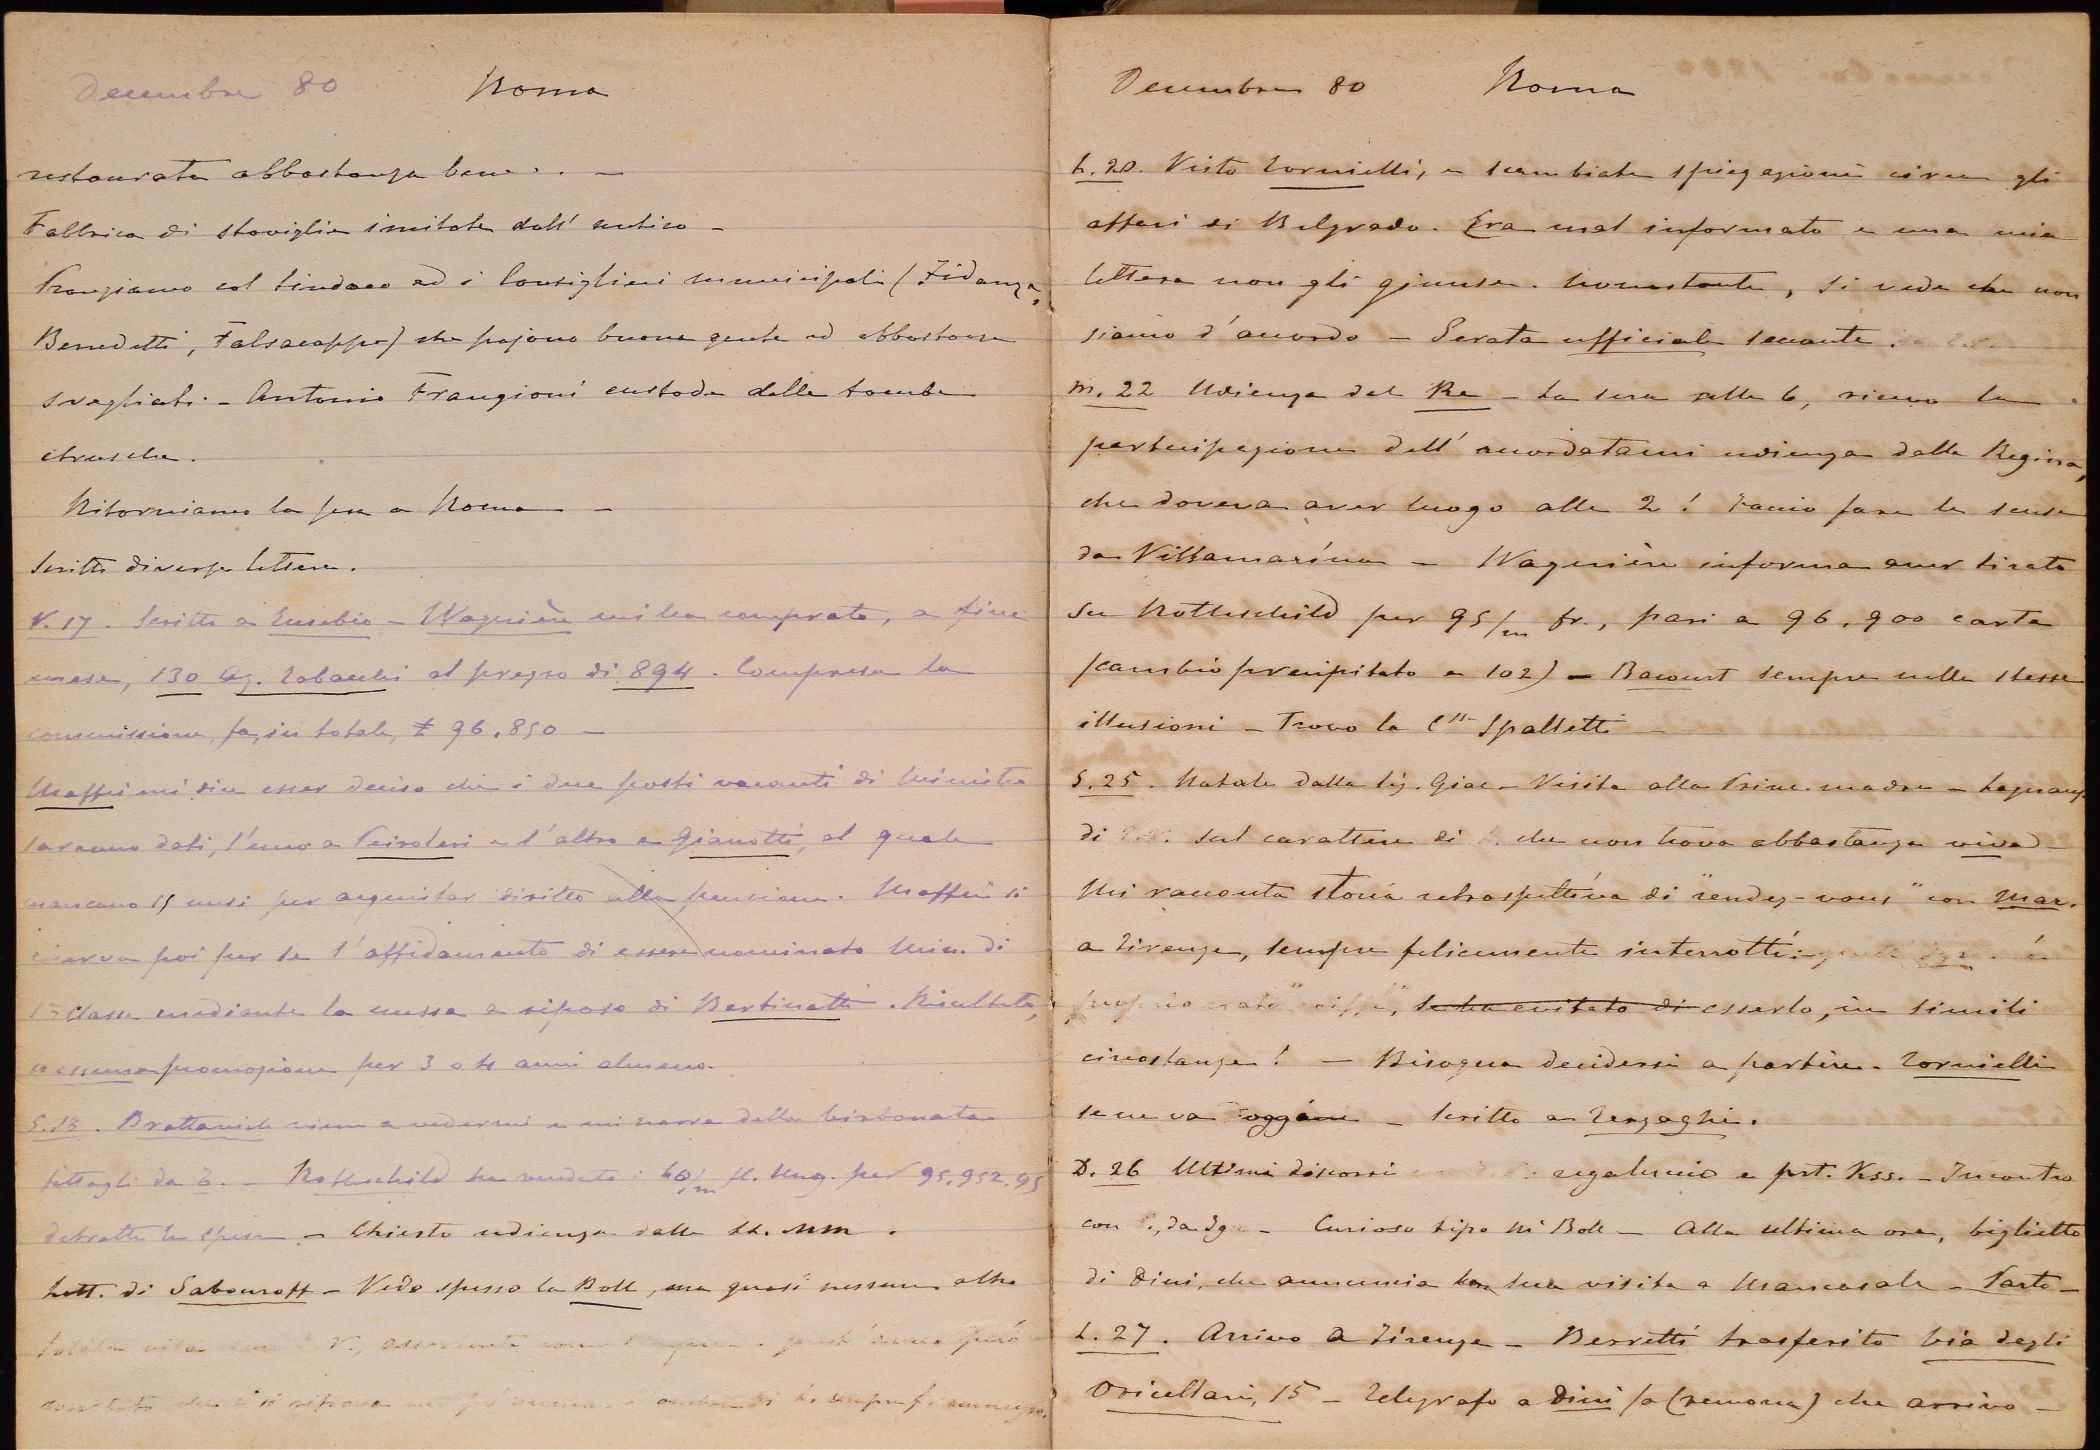 Decembre 80 Roma
restaurata abbastanza bene. . —
Fabbrica di stoviglie imitate dall' antico —
Pranziamo col Sindaco ed i Consiglieri municipali (Fidanza,
Benedetti, Falsacappa) che pajono buona gente ed abbastanza
svegliati. — Antonio Frangioni custode delle tombe
etrusche.
Ritorniamo la sera a Roma —
Scritte diverse lettere.
V. 17. Scritto a Eusebio — Wagnière mi ha comprato, a fine
mese, 130 Az. Tabacchi al prezzo di 894. Compresa la
commissione, fa, in totale, £ 96.850 —
Maffei mi dice esser deciso che i due posti vacanti di Ministro
saranno dati, l'uno a Peiroleri e l'altro a Gianotti, al quale
mancano 15 mesi per acquistar diritto alla pensione. Maffei si
riserva poi per se l'affidamento di essere nominato Min. di
1ª Classe mediante la messa a riposo di Bertinatti. Risultato,
nessuna promozione per 3 o 4 anni almeno.
S. 18. Brattanich viene a vedermi e mi narra della birbonata
fattagli da — Rothschild ha venduto i 60/m fl. Ung. per 95,952.95
detratte le spese — Chiesto udienza dalle LL. MM.
Lett. di Sabouroff — Vedo spesso la Boll, ma quasi nessun altro
Decembre 80 Roma
L. 20. Visto Tornielli, e scambiate spiegazioni circa gli
affari di Belgrado. Era mal informato e una mia
lettera non gli giunse. Nonostante, si vede che non
siamo d'accordo — Serata ufficiale seccante.
M. 22 Udienza dal Re — La sera alle 6, ricevo la
partecipazione dell' accordatami udienza dalla Regina,
che doveva aver luogo alle 2! Faccio fare le scuse
da Villamarina — Wagnière informa aver tirato
su Rothschild per 95/m fr., pari a 96.900 carta
(cambio precipitato a 102) — Bacourt sempre nelle stesse
illusioni — Trovo la Cssa Spalletti —
S. 25. Natale dalla Sig. Giac — Visita alla Princ. madre — Lagnanze
di sul carattere di che non trova abbastanza vivo
Mi racconta storia retrospettiva di "rendez-vous" con Mar.
a Firenze, sempre felicemente interrotti:
proprio nato se ha evitato di esserlo, in simili
circostanze! — Bisogna decidersi a partire. Tornielli
se ne va oggi — Scritto a Terzaghi.
D. 26 Ultimi discorsi — Incontro
con — Curioso tipo Boll — Alla ultima ora, biglietto
di Dini, che annuncia sua visita a Mancasale — Parto —
L. 27. Arrivo a Firenze — Berretti trasferito via degli
Oricellari, 15 — Telegrafo a Dini (a Cremona) che arrivo —